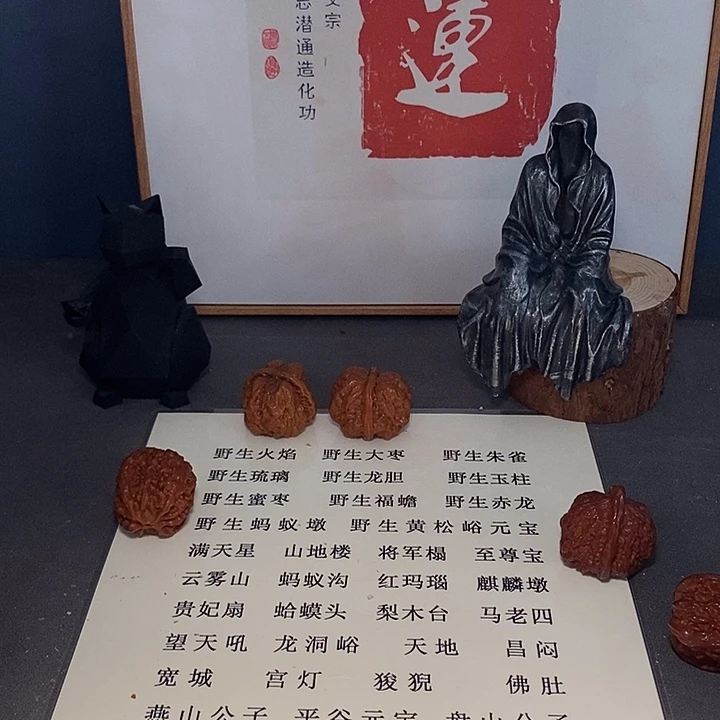 運
宗
潜通造化功
野生火焰 野生大枣 野生朱雀
野生琉璃 野生龙胆 野生玉柱
野生蜜枣 野生福蟾 野生赤龙
野生蚂蚁墩 野生黄松峪元宝
满天星 山地楼 将军榻 至尊宝
云雾山 蚂蚁沟 红玛瑙 麒麟墩
贵妃扇 蛤蟆头 梨木台 马老四
望天吼 龙洞峪 天地 昌闷
宽城 宫灯 狻猊 佛肚
燕山公子 平谷元宝 盘山公子